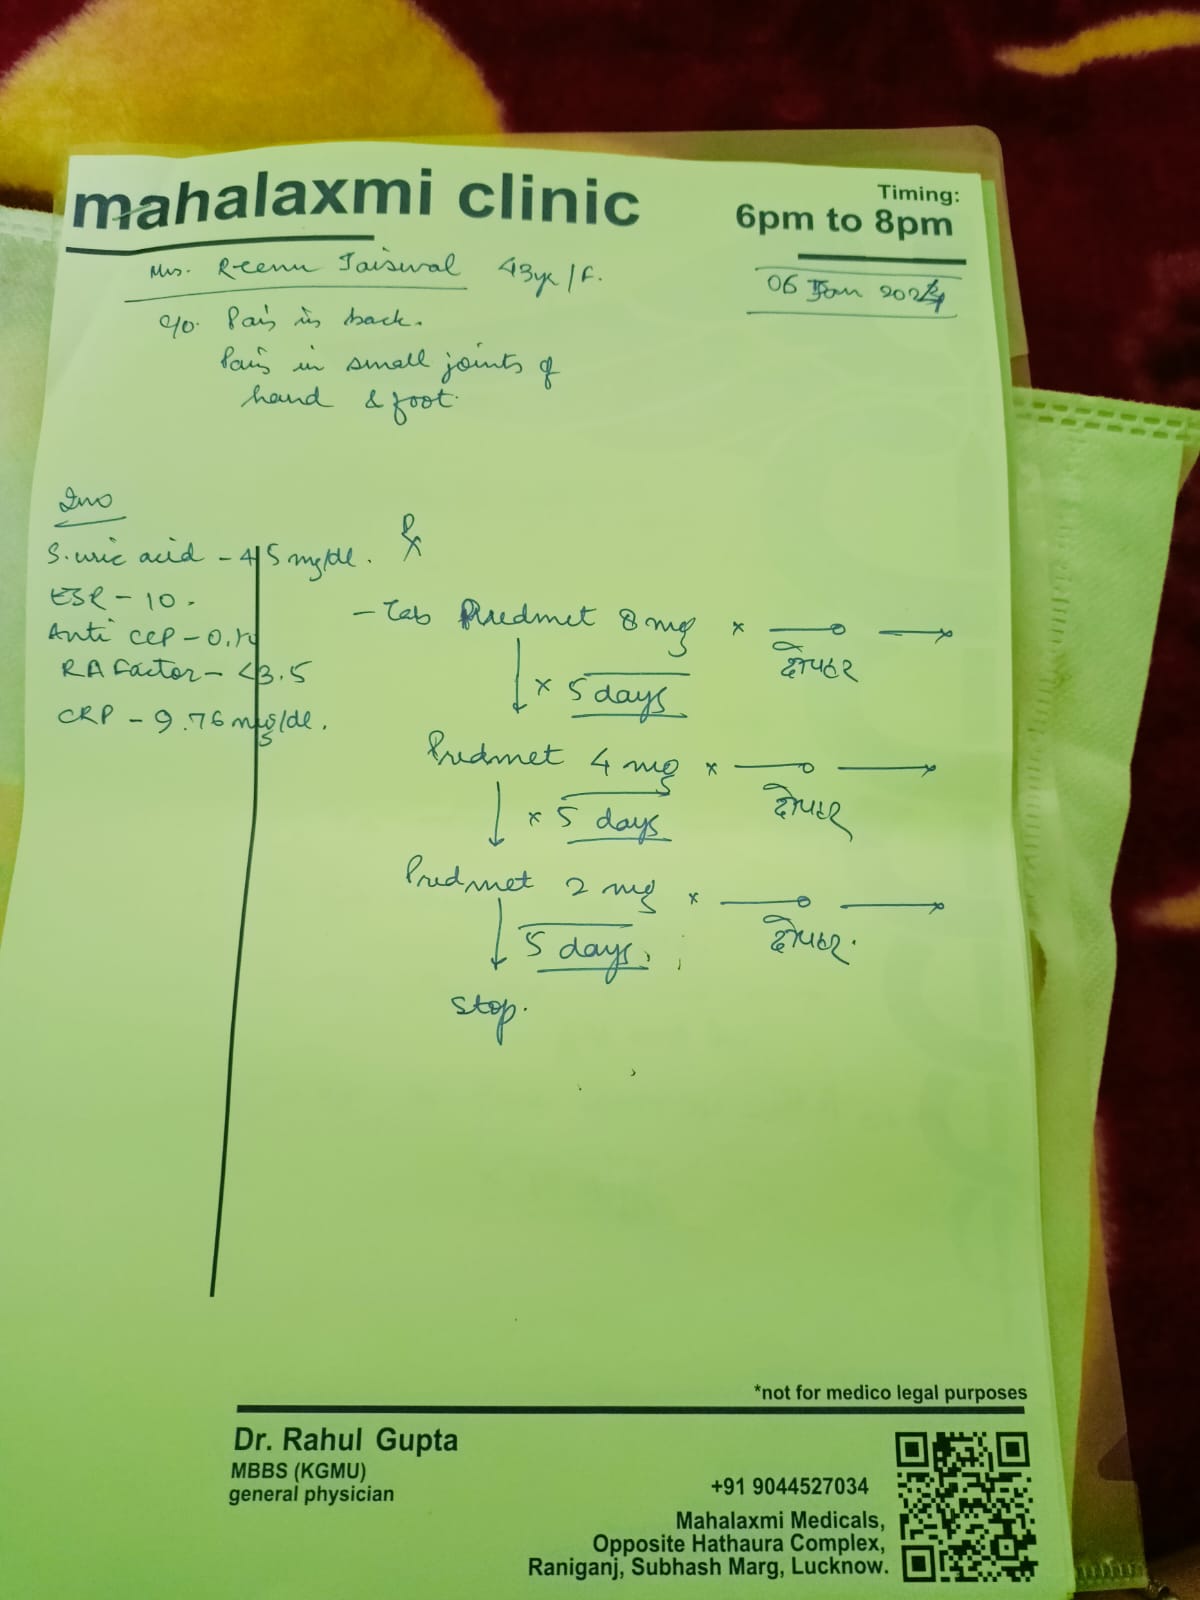 mahalaxmi clinic
Timing:
6pm to 8pm
Mrs. Reenu Jaiswal 43yr/F.
06 Jan 2024
c/o. Pain in back.
Pain in small joints of
hand & foot.
Inv
S. uric acid - 4.5 mg/dl.
ESR - 10.
Anti CCP - 0.
RA Factor - <3.5
CRP - 9.76 mg/dl.
Rx
- Tab Predmet 8 mg x
दोपहर
x 5 days
Predmet 4 mg x
दोपहर
x 5 days
Predmet 2 mg x
दोपहर.
5 days.
Stop.
*not for medico legal purposes
Dr. Rahul Gupta
MBBS (KGMU)
general physician
+91 9044527034
Mahalaxmi Medicals,
Opposite Hathaura Complex,
Raniganj, Subhash Marg, Lucknow.